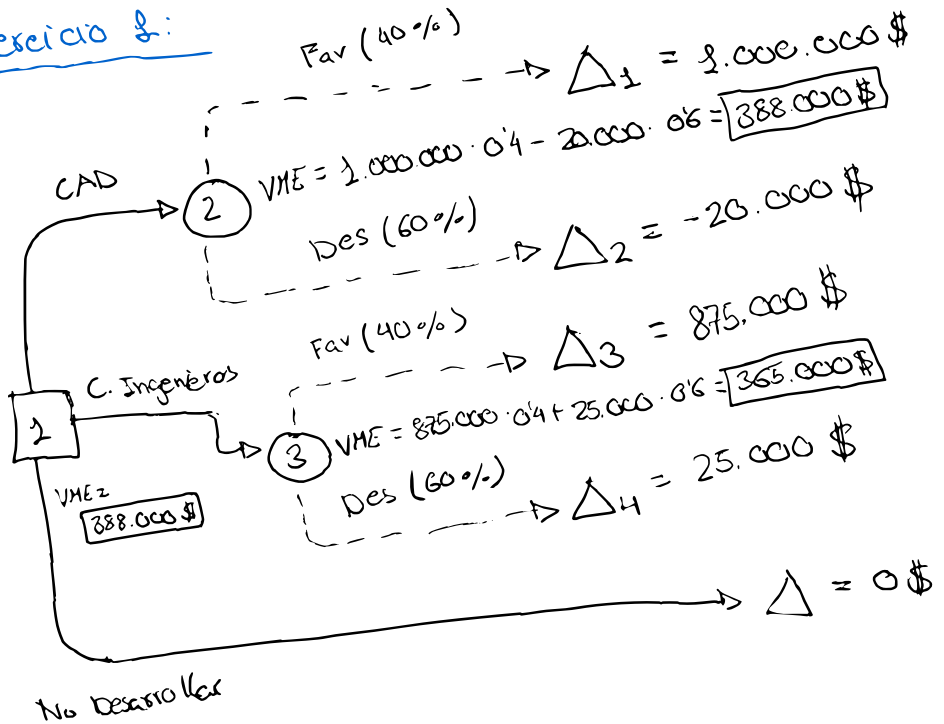 ercicio 1:
Fav (40%)
△1 = 1.000.000 $
CAD
2
VME = 1.000.000 · 0'4 - 20.000 · 0'6 = 388.000 $
Des (60%)
△2 = -20.000 $
Fav (40%)
△3 = 875.000 $
C. Ingenieros
1
3
VME = 875.000 · 0'4 + 25.000 · 0'6 = 365.000 $
Des (60%)
△4 = 25.000 $
VME=
388.000 $
△ = 0 $
No Desarrollar